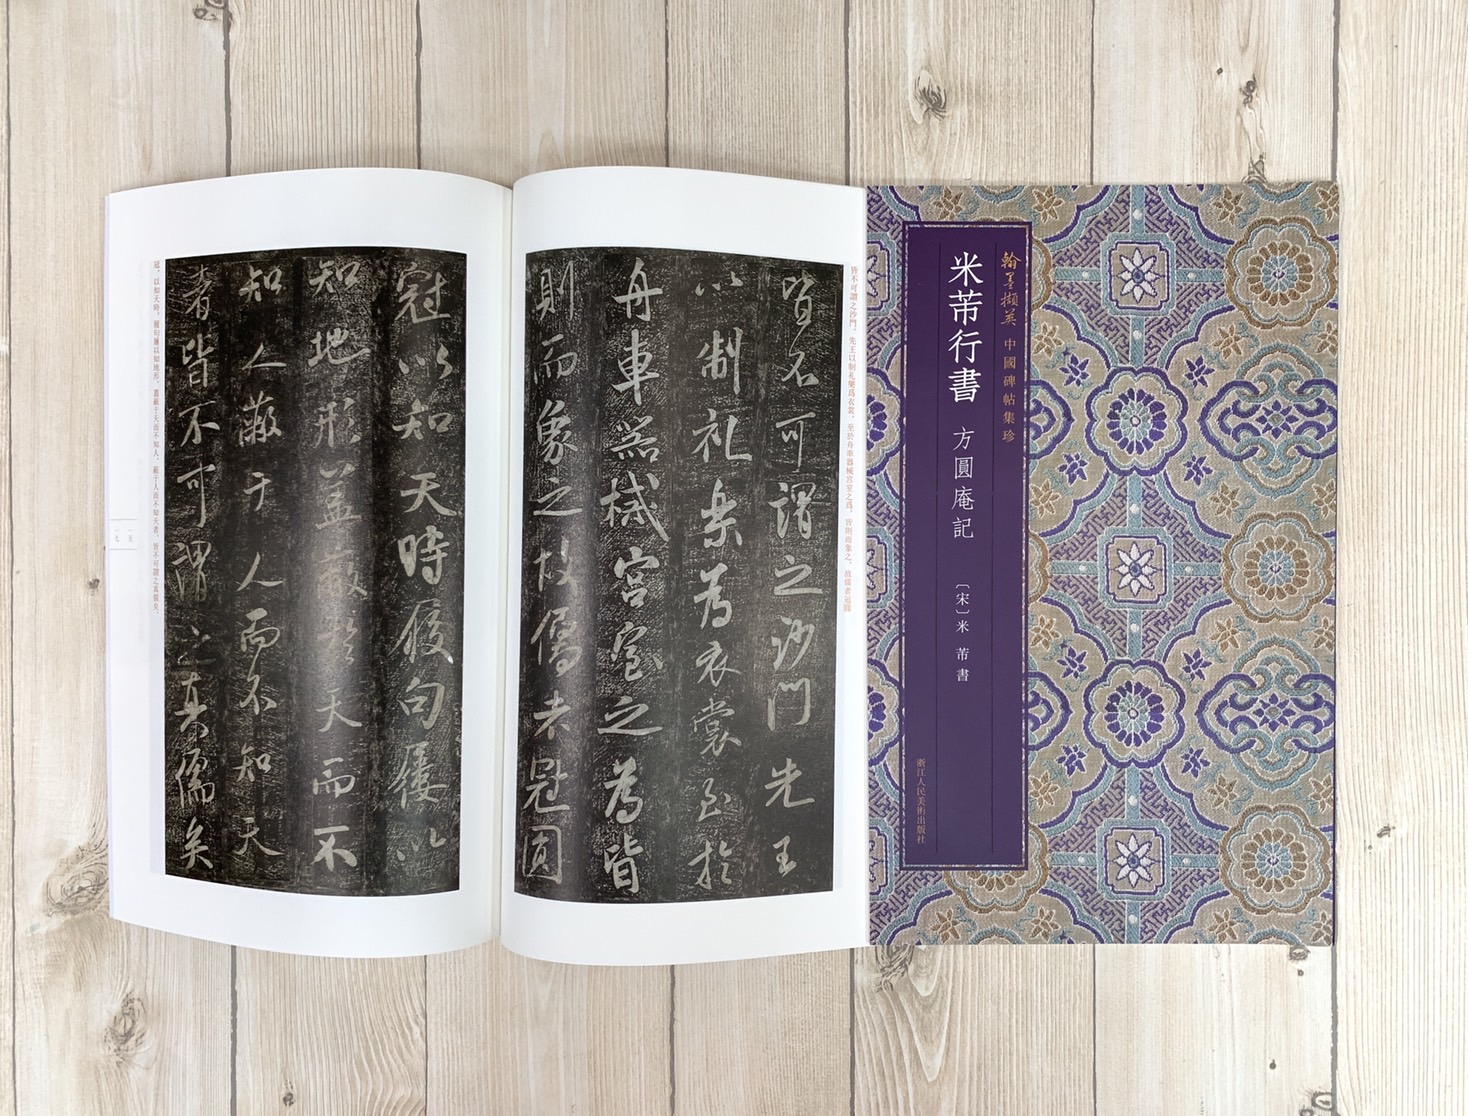 翰墨擷英 中國碑帖集珍
米芾行書 方圓庵記 〔宋〕米 芾 書
浙江人民美術出版社
皆不可謂之沙門。先王以制礼樂爲衣裳,至於舟車器械宮室之爲,皆則而象之。故儒者冠圓
皆不可謂之沙門先王
以制礼楽為衣裳至於
舟車器械宮室之為皆
則而象之故儒者冠圓
冠以知天時履句屨以
知地形盖蔽於天而不
知人蔽于人而不知天
者皆不可謂之真儒矣
冠,以知天時,履句屨以知地形。蓋蔽于天而不知人,蔽于人而不知天者,皆不可謂之真儒矣。